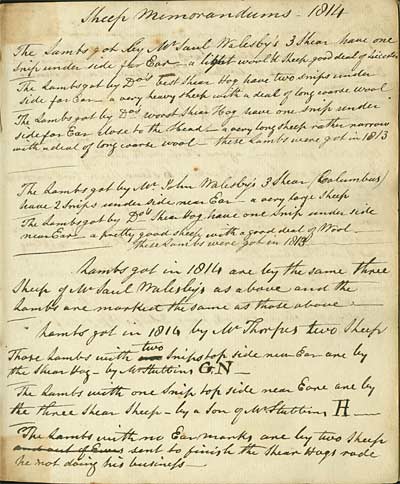 Sheep Memorandums - 1814
The Lambs got by Mr Saul Walesby's 3 Shear have one
Snip under side far Ear - a light wool'd Sheep good deal of Leicester
The Lambs got by Dos best Shear Hog have two snips under
side far Ear - a very heavy sheep with a deal of long coarse wool
The Lambs got by Dos worst Shear Hog have one snip under
side far Ear close to the Head - a very long sheep rather narrow
with a deal of long coarse wool - these Lambs were got in 1813
The Lambs got by Mr John Walesby's 3 Shear (Columbus)
have 2 Snips under side near Ear - a very large Sheep
The Lambs got by Dos Shear Hog have one Snip under side
near Ear - a pretty good sheep with a good deal of Wool -
these Lambs were got in 1813
Lambs got in 1814 are by the same three
Sheep of Mr Saul Walesby's as above and the
Lambs are marked the same as those above -
Lambs got in 1814 by Mr Thorpes two Sheep
Those Lambs with two Snips top side near Ear are by
the Shear Hog - by Mr Stubbins G.N -
The Lambs with one Snip top side near Eare are by
the three Shear Sheep - by a Son of Mr Stubbins H -
The Lambs with no Ear marks are by two Sheep
and out of Ewes sent to finish the Shear Hogs rode
he not doing his business -